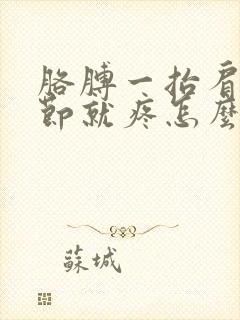 胳膊一抬肩
節就疼怎麼
蘇城